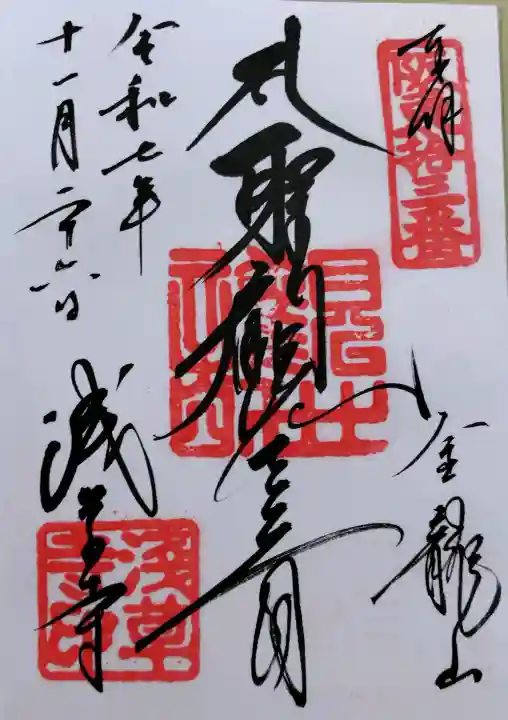 奉拝
坂東拾三番
金龍山
聖観世音
令和七年
十一月二十六日
浅草寺
浅草寺印